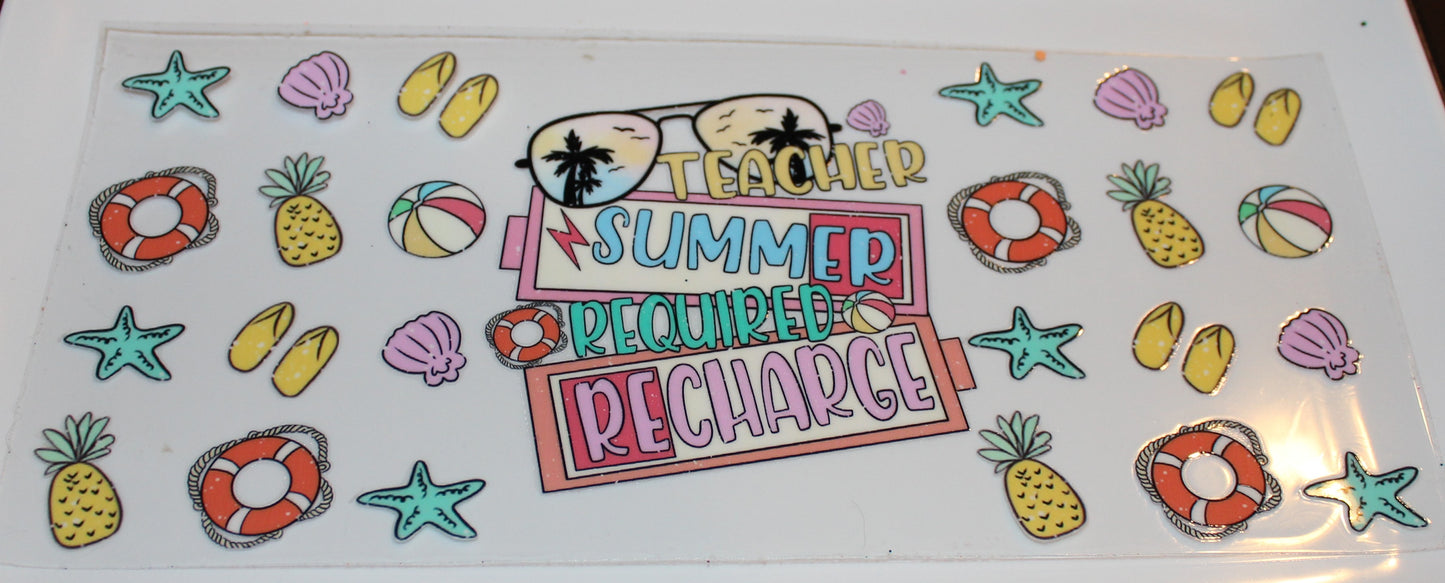 TEACHER
SUMMER
REQUIRED
RECHARGE